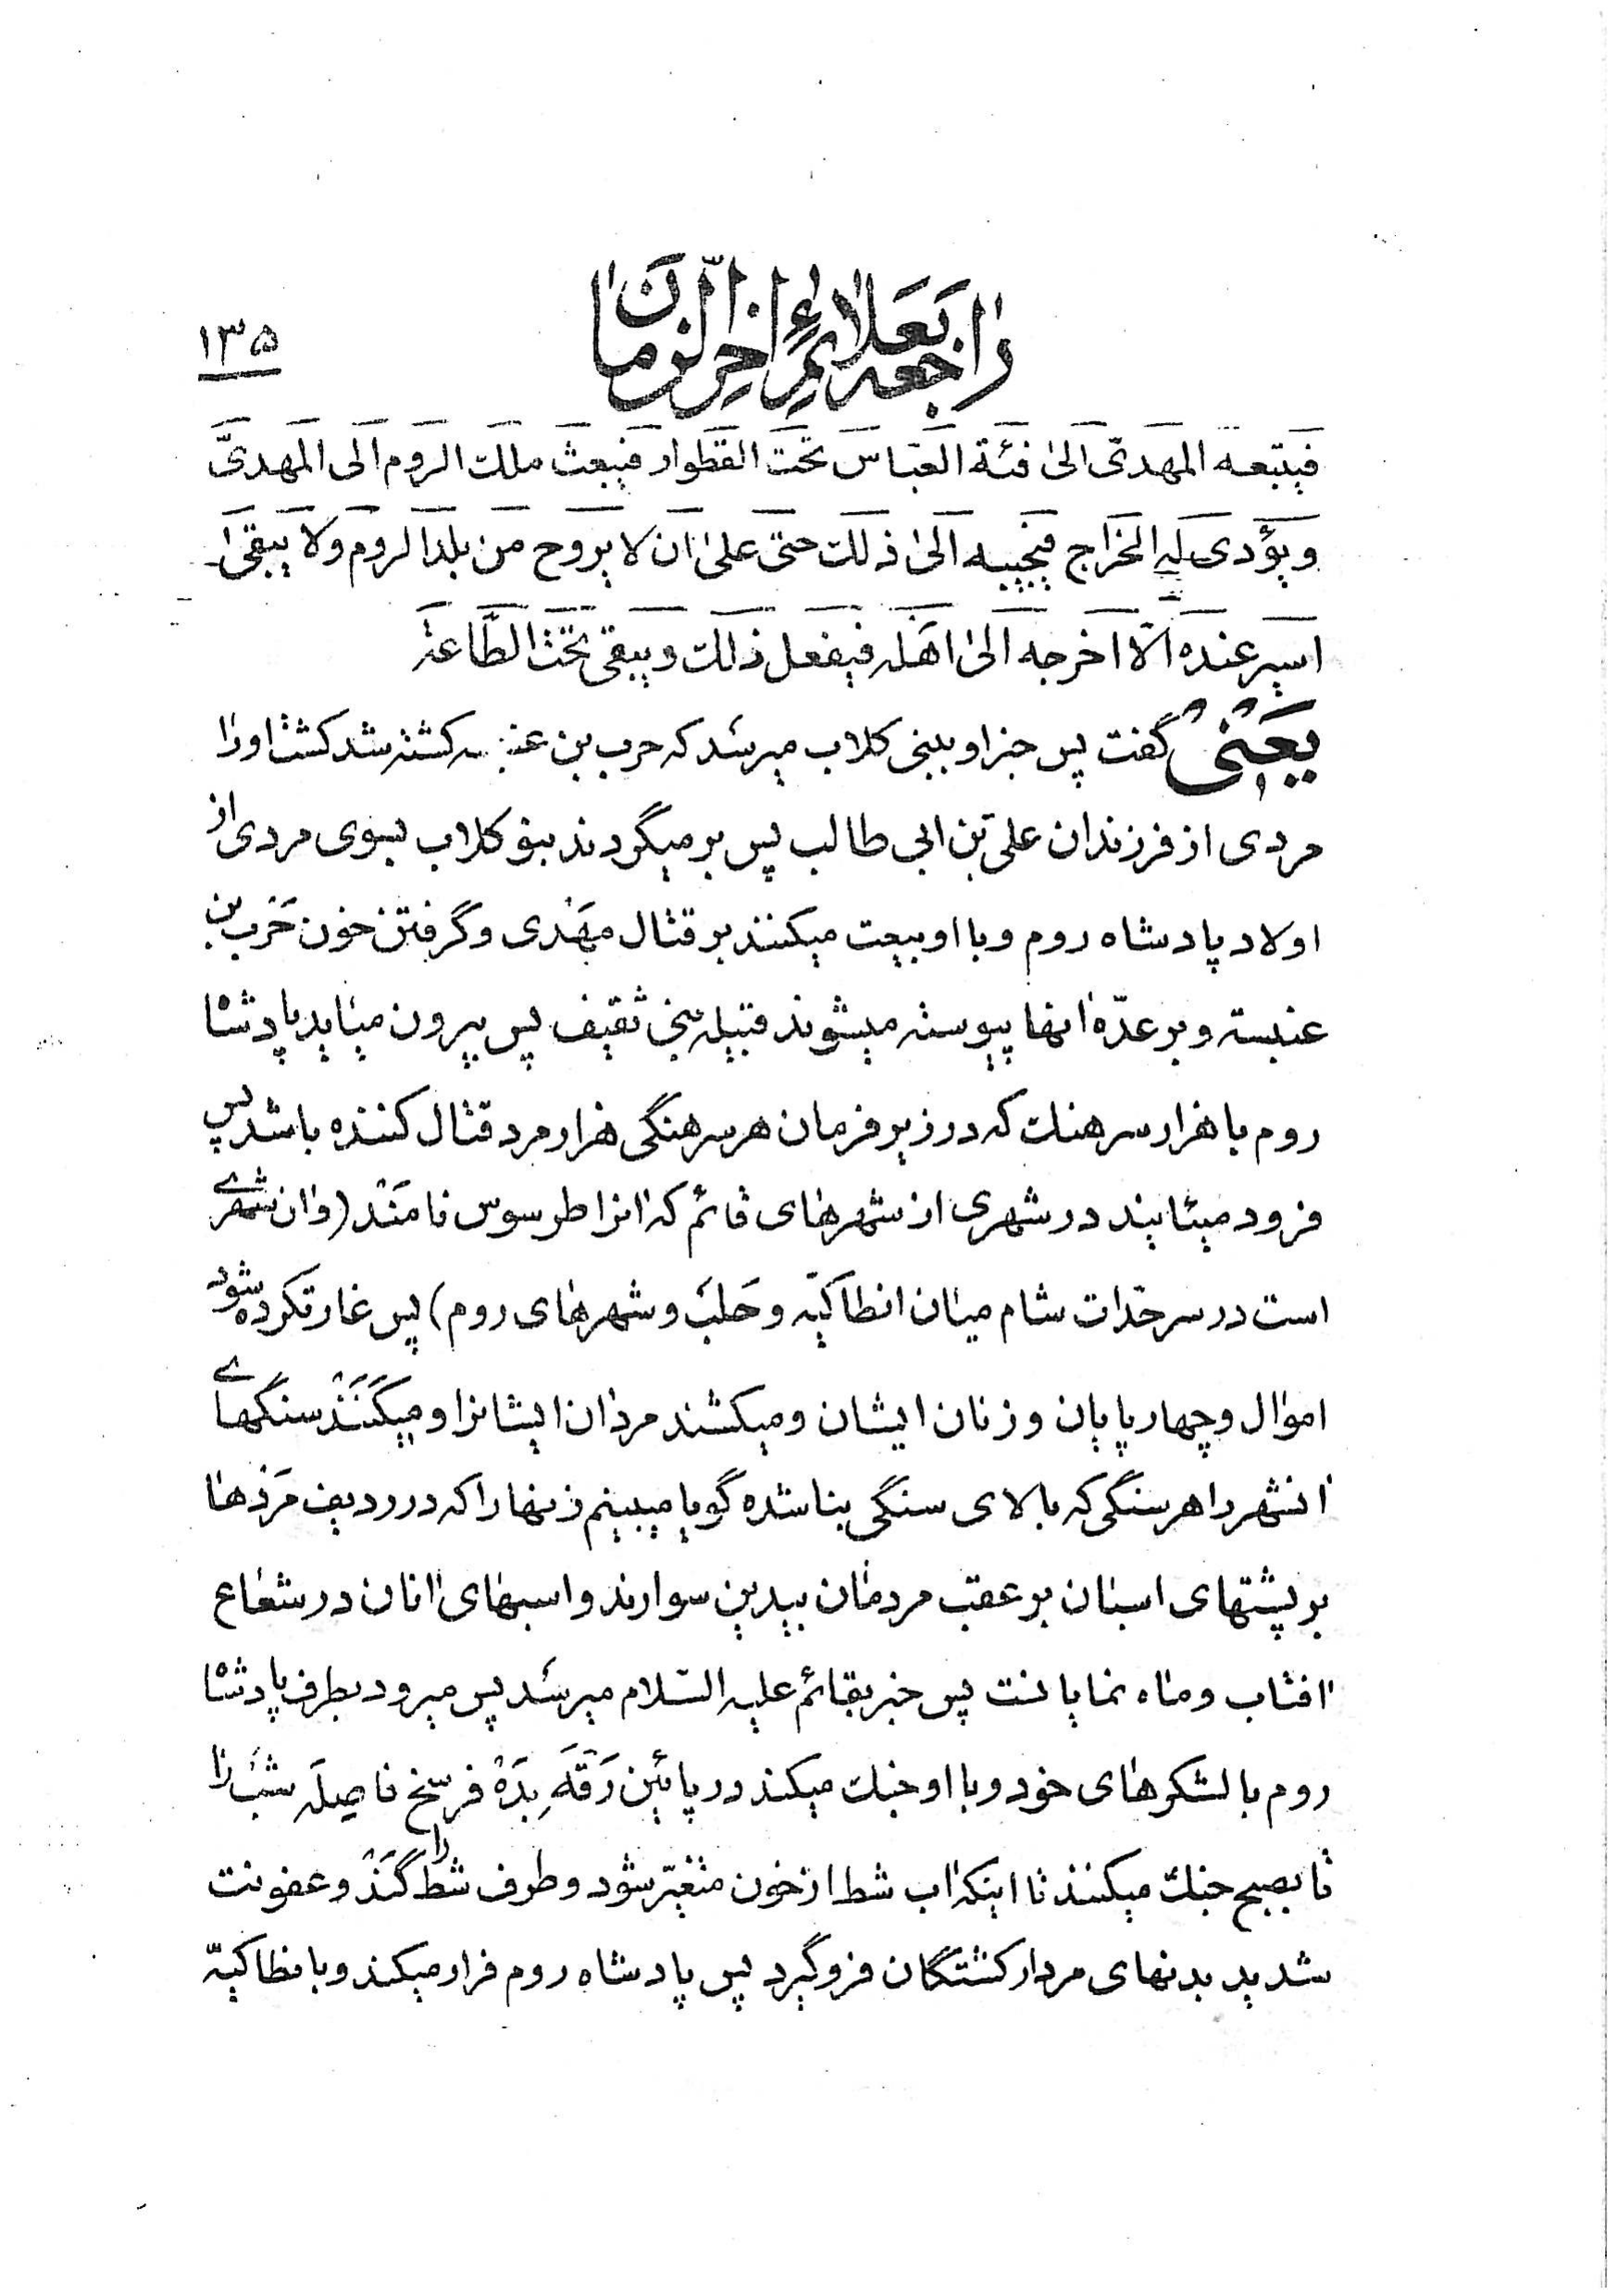 راجعه بعلائم اخر الزمان
۱۳۵
فیتبعه المهدیّ الیٰ فئة العبّاس تحت القطوار فیبعث ملك الروم الی المهدیّ
و یؤدی له الخراج فیجیبه الیٰ ذلك حتی علیٰ ان لا یروح من بلد الروم ولا یبقیٰ
اسیر عنده الّا اخرجه الیٰ اهله فیفعل ذلك و یبقی تحت الطّاعة
یَعنی گفت پس خبر او ببنی کلاب میرسد که حرب بن عنبسه کشته شد کشت اورا
مردی از فرزندان علیّ بن ابی طالب پس برمیگردند بنو کلاب بسوی مردی از
اولاد پادشاه روم و با او بیعت میکنند بر قتال مهدی و گرفتن خون حَرب بن
عنبسته و بر عدّهٔ انها پیوسته میشوند قبیله بنی ثقیف پس بیرون میاید پادشاه
روم با هزار سرهنك که در زیر فرمان هر سرهنگی هزار مرد قتال کننده باشد پس
فرود میایند در شهری از شهرهای قائم که انرا طرسوس نامَند (و ان شهرے
است در سرحدّات شام میان انطاکیّه و حَلب و شهرهای روم) پس غارتکرده شود
اموال و چهارپایان و زنان ایشان و میکشند مردان ایشانرا و میکَنَند سنگهاے
انشهر را هر سنگی که بالای سنگی بنا شده گویا میبینم زنهارا که در ردیف مَردها
بر پشتهای اسبان بر عقب مردمان بیدین سوارند و اسبهای انان در شعاع
افتاب و ماه نمایانست پس خبر بقائم علیه السّلام میرسَد پس میرود بطرف پادشاه
روم با لشکرهای خود و با او جنك میکند در پائین رَقّه بِدَه فرسخ فاصِلَه شبَ را
تا بصبح جنك میکنند تا اینکه اب شط از خون متغیّر شود و طرف شط را گَند و عفونت
شدید بدنهای مردار کشتگان فرو گیرد پس پادشاه روم فرار میکند و بانطاکیّه